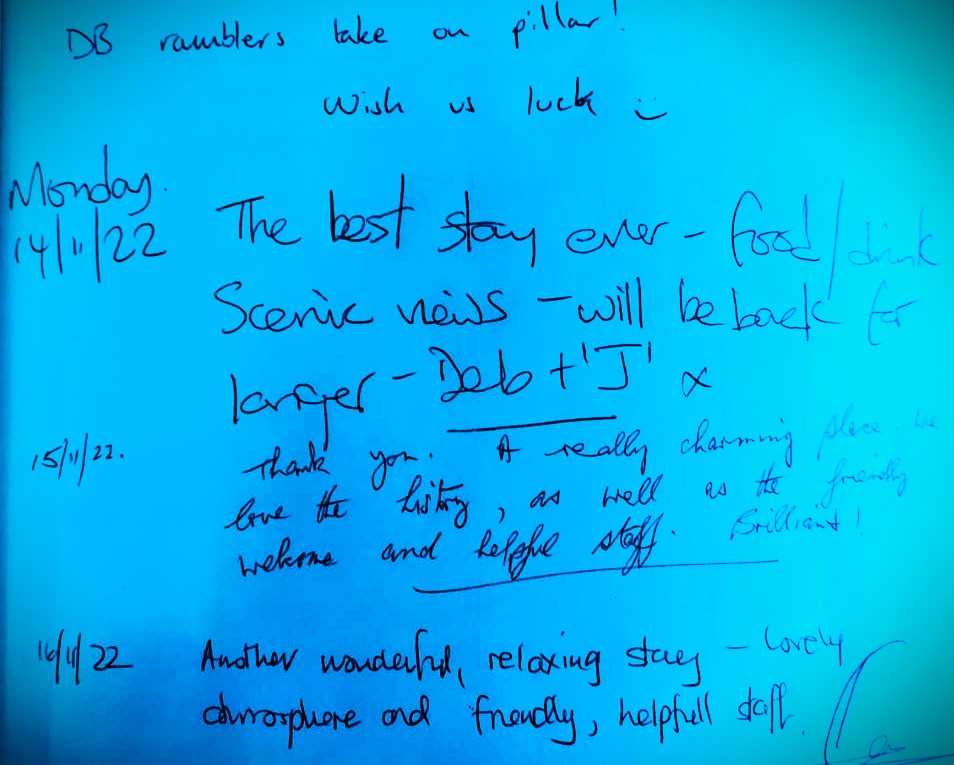 DB ramblers take on pillar!
Wish us luck :)
Monday.
14/11/22 The best stay ever - food/drink
Scenic veiws - will be back for
longer - Deb + 'J' x
15/11/22. Thank you. A really charming place. We
love the history, as well as the friendly
welcome and helpful staff. Brilliant!
16/11/22 Another wonderful, relaxing stay - lovely
atmosphere and friendly, helpfull staff.